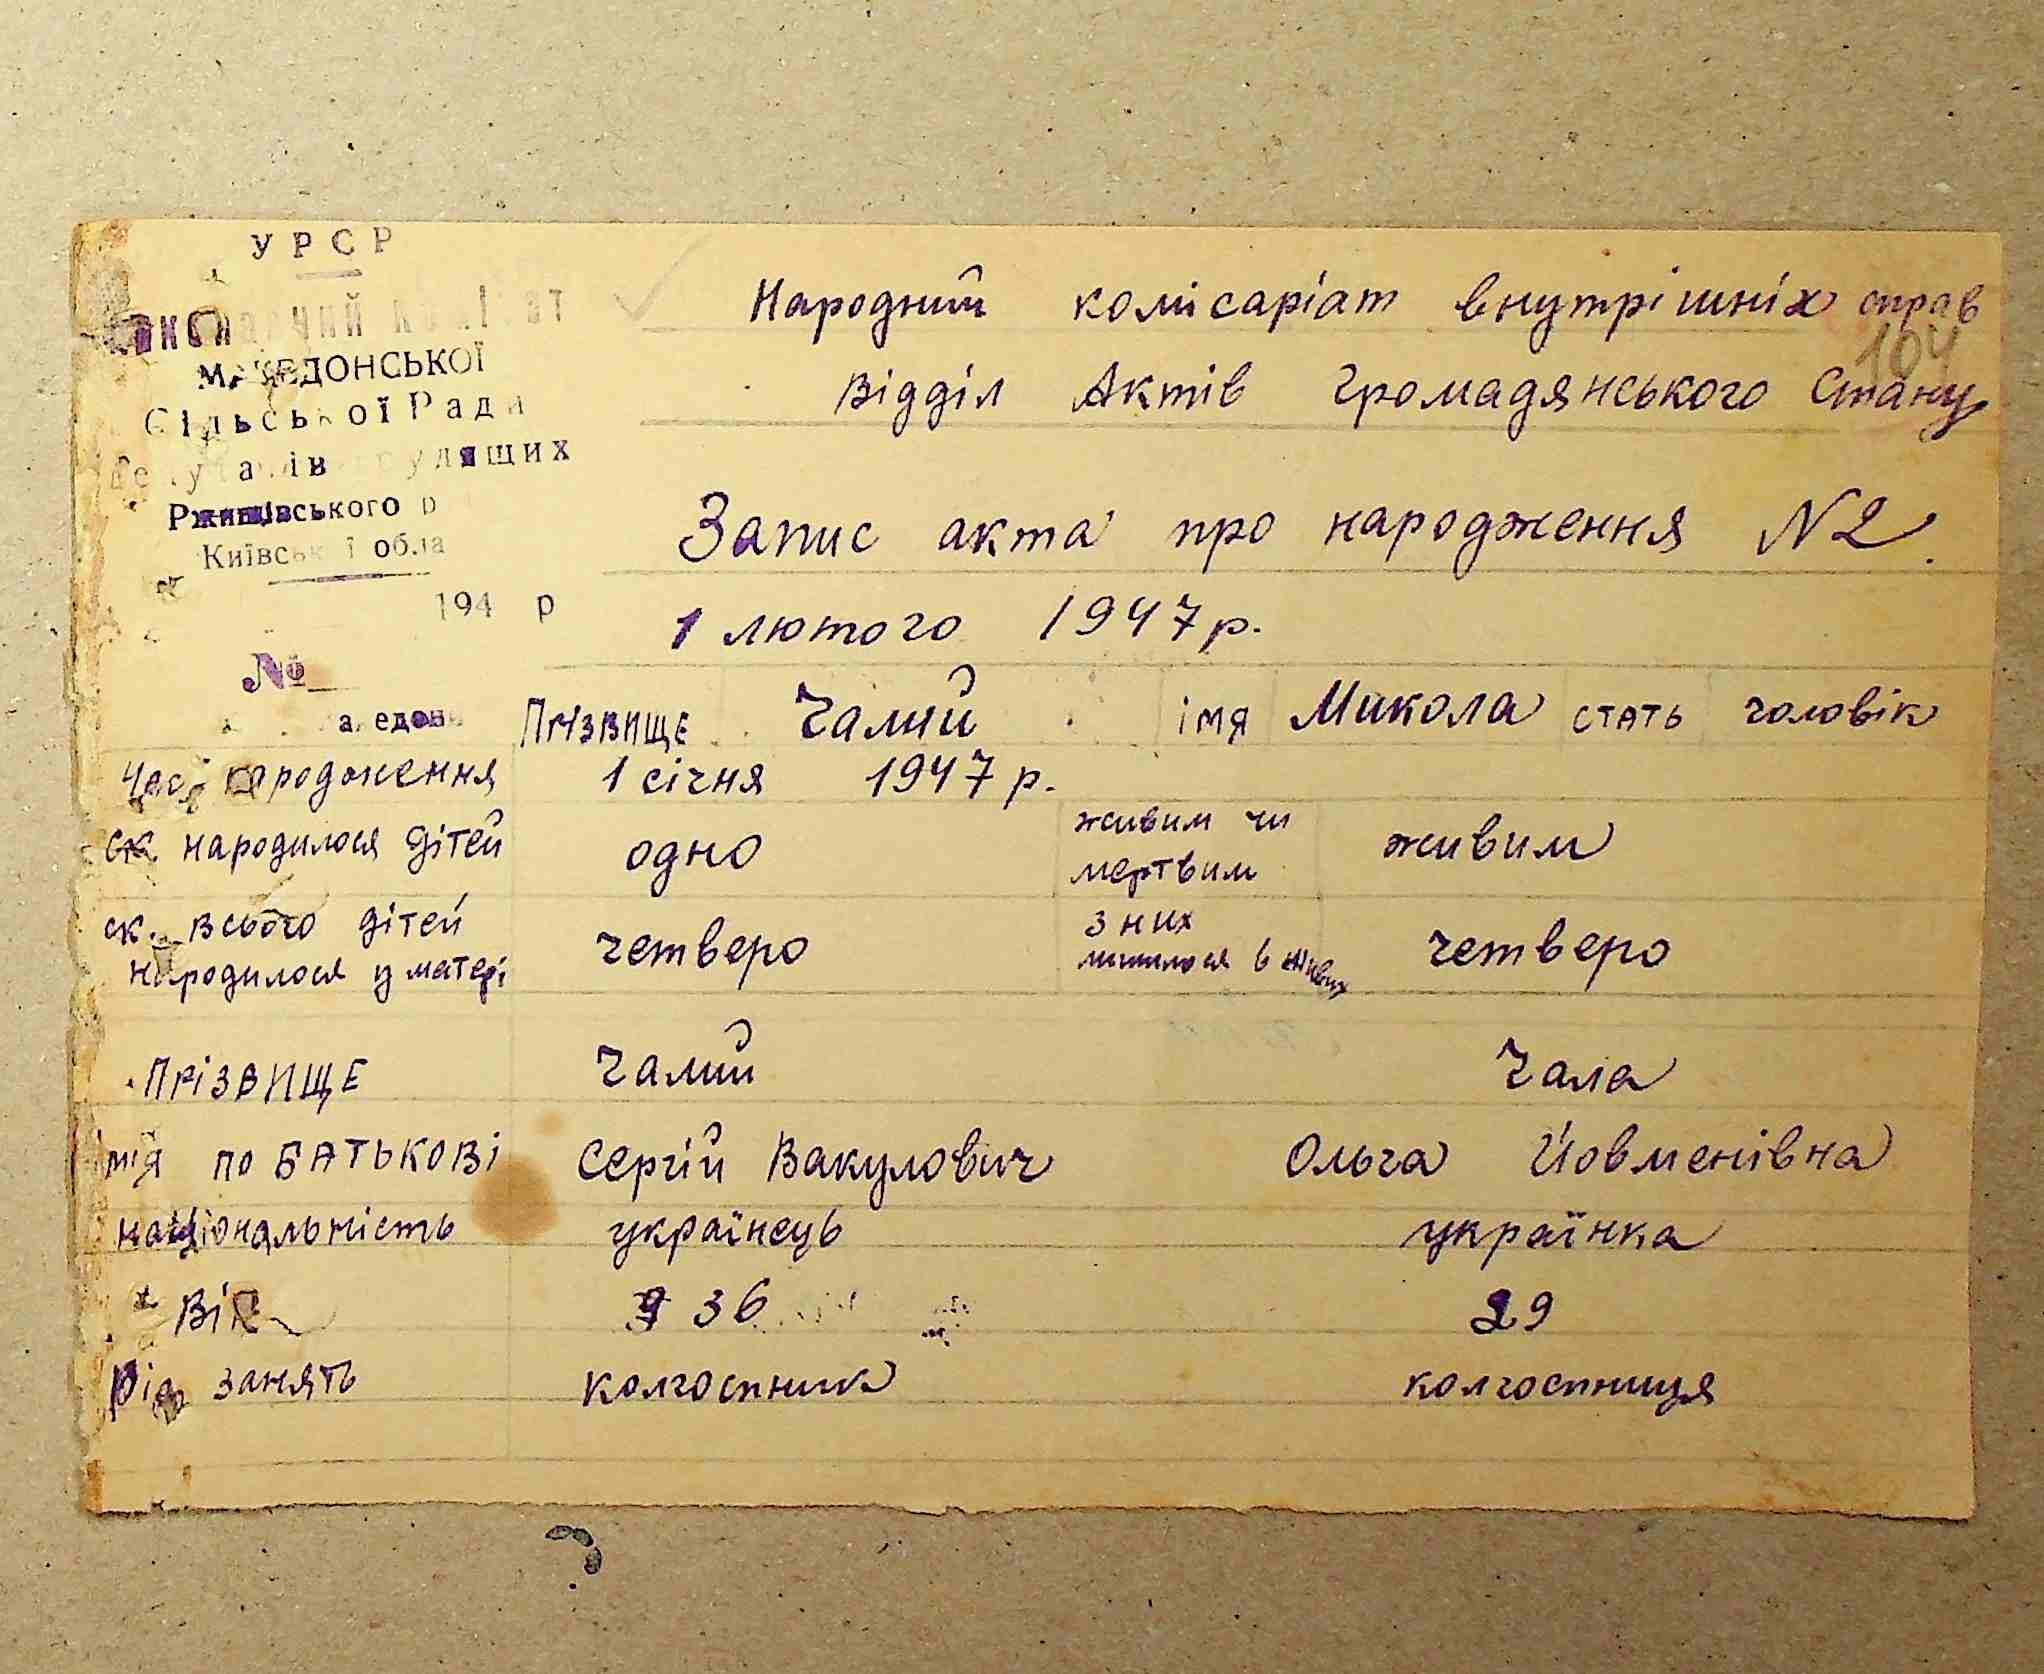 УРСР
МАКЕДОНСЬКОЇ
Сільської Ради
Ржищівського р
Київськ ї обла
194 р
№
Народний комісаріат внутрішніх справ
104
Відділ Актів Громадянського Стану
Запис акта про народження N2.
1 лютого 1947 р.
Прізвище Чалий імя Микола стать чоловік
Час народження 1 січня 1947 р.
ск. народилося дітей одно живим чи мертвим живим
ск. всього дітей народилося у матері четверо з них лишилося в живих четверо
Прізвище Чалий Чала
імя по БАТЬКОВі Сергій Вакулович Ольга Йовменівна
національність українець українка
Вік 36 29
Рід занять колгоспник колгоспниця